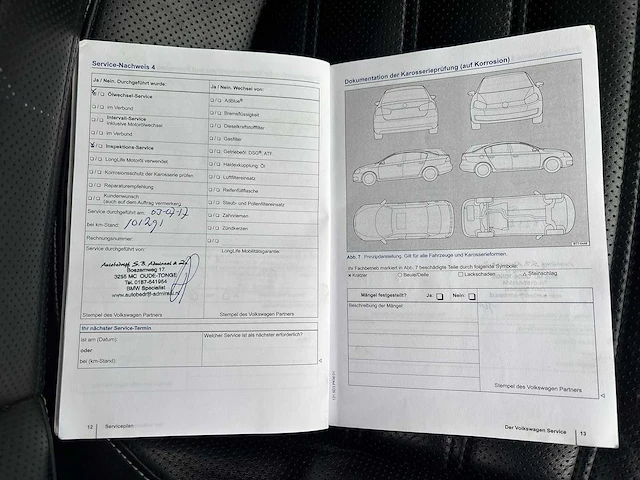 Service-Nachweis 4
Ja / Nein. Durchgeführt wurde:
Ölwechsel-Service
im Verbund
Intervall-Service
inklusive Motorölwechsel
im Verbund
Inspektions-Service
LongLife Motoröl verwendet
Korrosionsschutz der Karosserie prüfen
Reparaturempfehlung
Kundenwunsch
(auch auf dem Auftrag vermerken)
Service durchgeführt am: 03-07-17
bei km-Stand: 101291
Rechnungsnummer:
Service durchgeführt von:
Autobedrijf S.B. Admiraal
Boezemweg 17
3255 MC OUDE-TONGE
Tel. 0187-641954
BMW Specialist
www.autobedrijf-admiraal.nl
Stempel des Volkswagen Partners
Ja / Nein. Wechsel von:
AdBlue®
Bremsflüssigkeit
Dieselkraftstofffilter
Gasfilter
Getriebeöl: DSG®, ATF
Haldexkupplung: Öl
Luftfiltereinsatz
Reifenfüllflasche
Staub- und Pollenfiltereinsatz
Zahnriemen
Zündkerzen
LongLife Mobilitätsgarantie:
Stempel des Volkswagen Partners
Ihr nächster Service-Termin
ist am (Datum):
oder
bei (km-Stand):
Welcher Service ist als nächster erforderlich?
12 Serviceplan
Dokumentation der Karosserieprüfung (auf Korrosion)
Abb. 7 Prinzipdarstellung. Gilt für alle Fahrzeuge und Karosserieformen.
Ihr Fachbetrieb markiert in Abb. 7 beschädigte Teile durch folgende Symbole:
× Kratzer ○ Beule/Delle □ Lackschaden △ Steinschlag
Mängel festgestellt? Ja: Nein:
Beschreibung der Mängel:
Stempel des Volkswagen Partners
Der Volkswagen Service 13